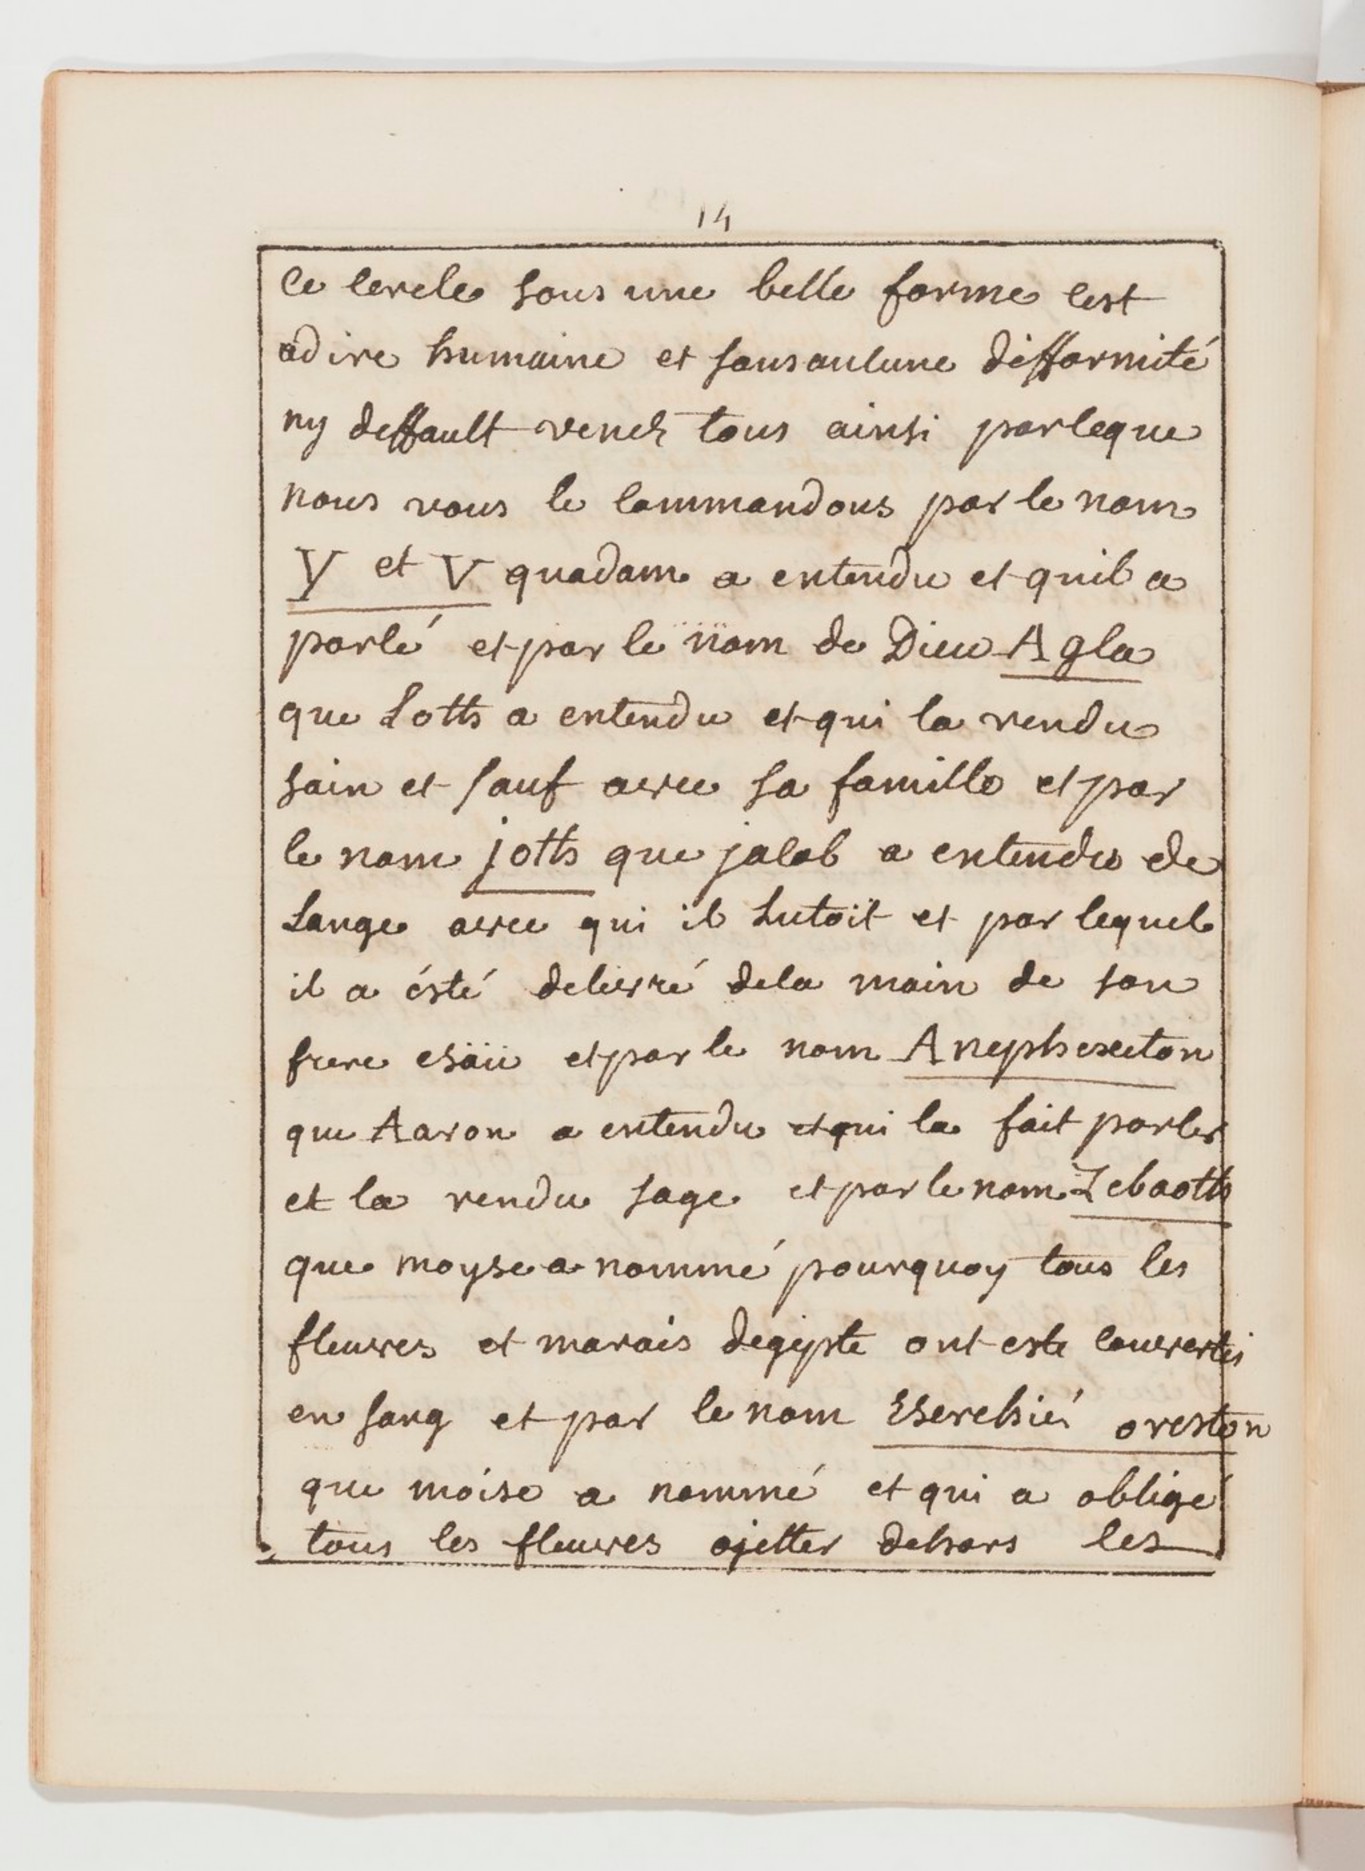 14
ce cercle sous une belle forme cest
adire humaine et sans aulcune difformité
ny deffault venez tous ainsi parceque
nous vous le commandons par le nom
Y et V quadam a entendu et quil a
parlé et par le nom de Dieu Agla
que Loth a entendu et qui la rendu
sain et sauf avec sa famille et par
le nom joth que jacob a entendu de
Lange avec qui il Lutoit et par lequel
il a ésté delivré dela main de son
frere esaü et par le nom Anephexeton
que Aaron a entendu et qui la fait parler
et la rendu sage et par le nom Zebaoth
que moyse a nommé pourquoy tous les
fleuves et marais degipte ont este convertis
en sang et par le nom Eserchié oreston
que moise a nommé et qui a obligé
tous les fleuves ajetter dehors les